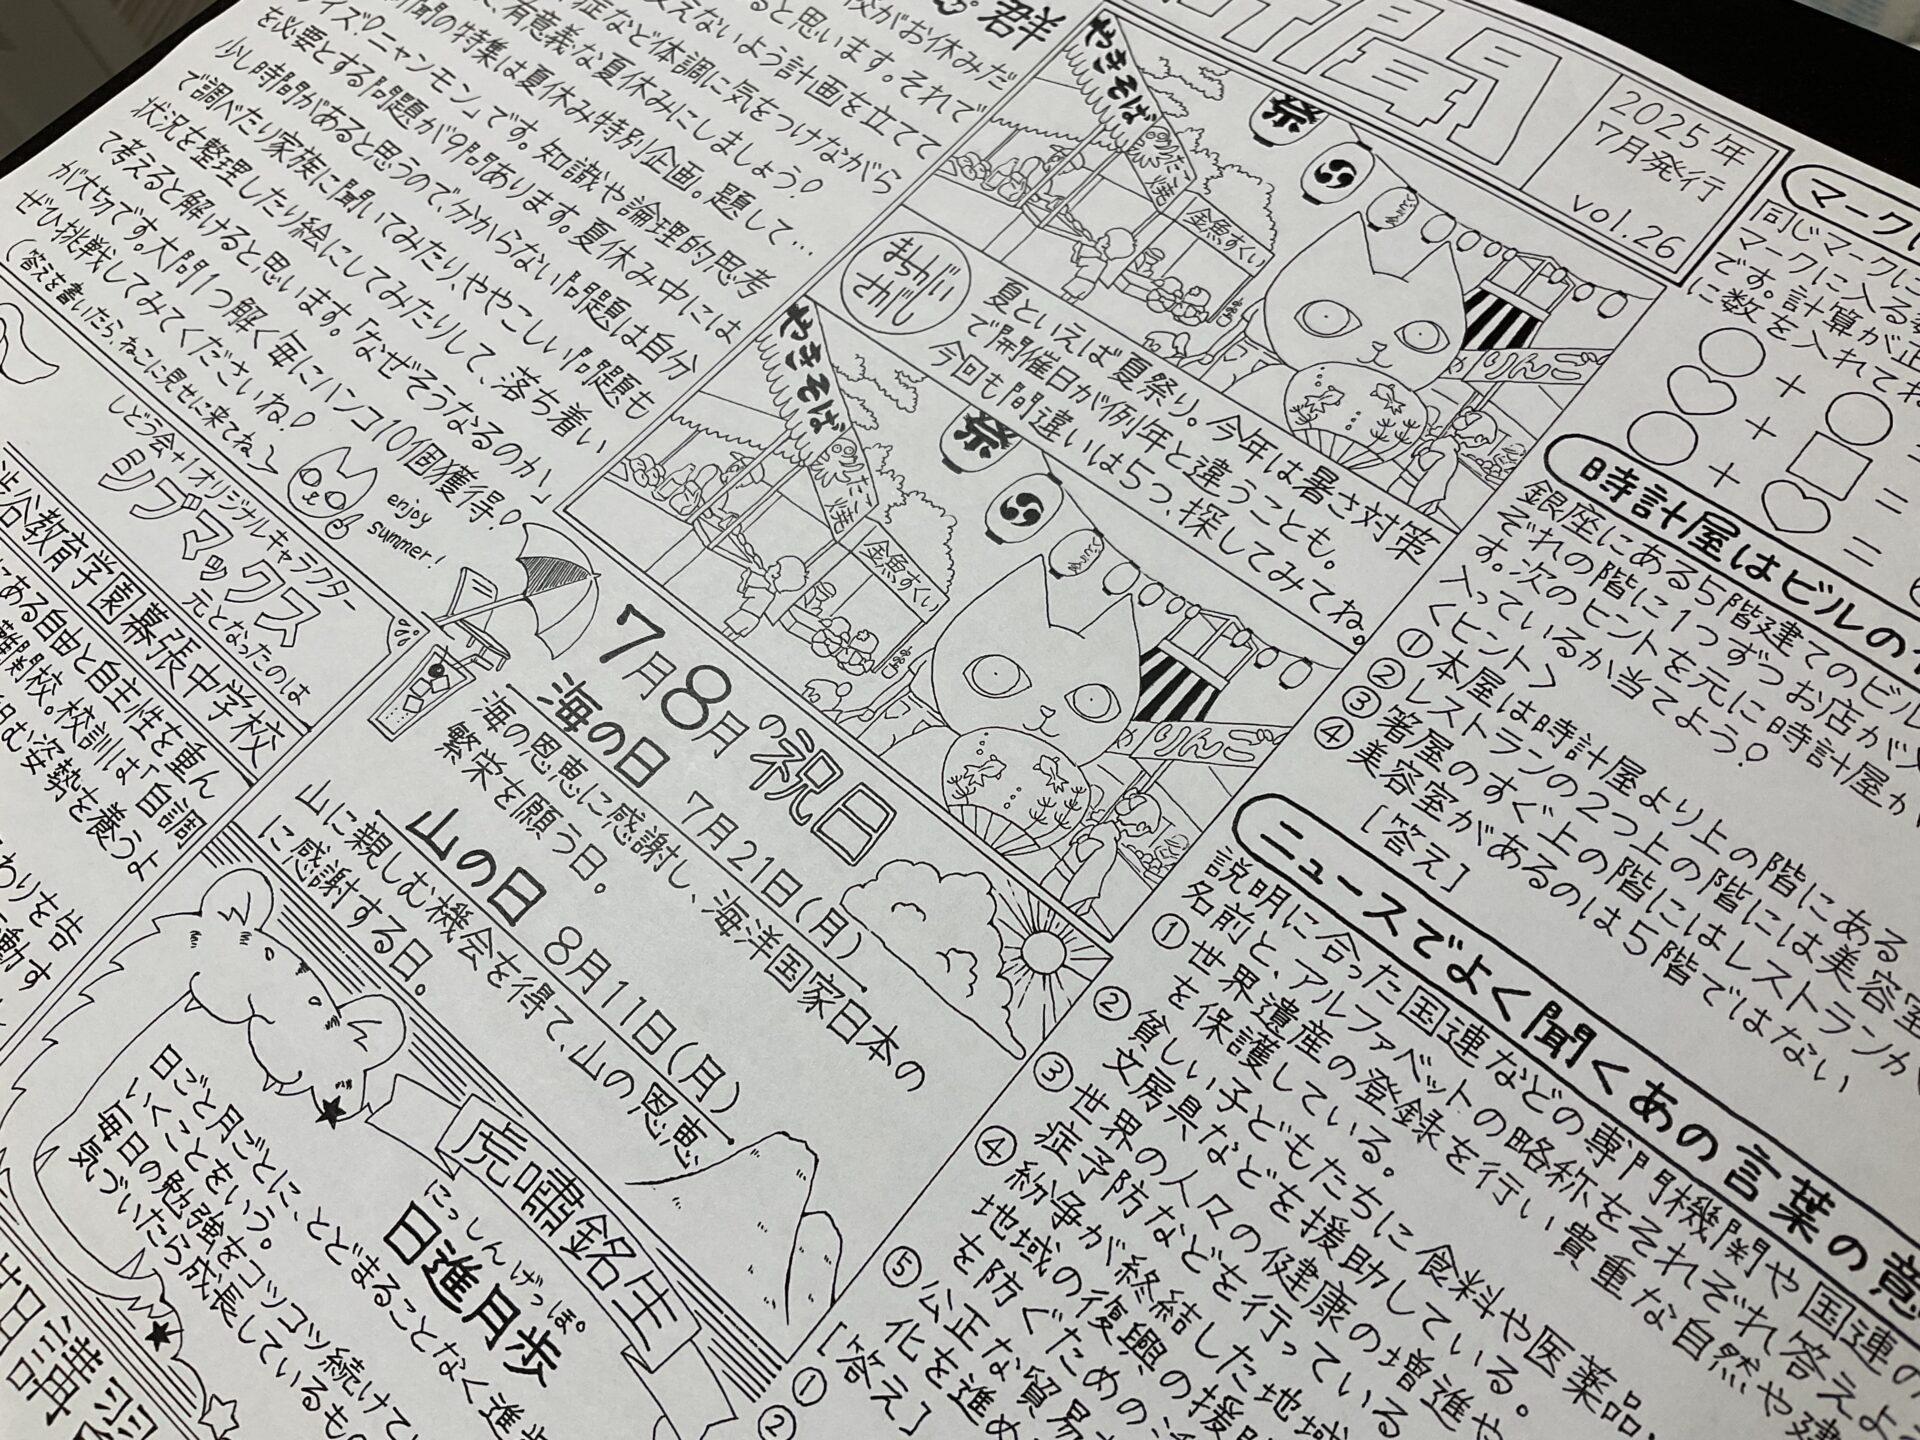 新聞
2025年
7月発行
vol.26
群
校がお休みだ
ると思います。それで
支えないよう計画を立てて
症など体調に気をつけながら
た、有意義な夏休みにしましょう!
新聞の特集は夏休み特別企画。題して…
イズ!ニャンモン」です。知識や論理的思考
を必要とする問題が9問あります。夏休み中には
少し時間があると思うので、分からない問題は自分
で調べたり家族に聞いてみたり、ややこしい問題も
状況を整理したり絵にしてみたりして、落ち着い
て考えると解けると思います。「なぜそうなるのか」
が大切です。大問1つ解く毎にハンコ10個獲得!
ぜひ挑戦してみてくださいね!
(答えを書いたら、ねこに見せに来てね)
enjoy
summer!
やきそば
たこ焼
金魚すくい
祭
りんご
まちがい
さがし
夏といえば夏祭り。今年は暑さ対策
で開催日が例年と違うことも。
今回も間違いは5つ、探してみてね。
やきそば
たこ焼
金魚すくい
祭
りんご
7月8月の祝日
海の日 7月21日(月)
海の恩恵に感謝し、海洋国家日本の
繁栄を願う日。
山の日 8月11日(月)
山に親しむ機会を得て、山の恩恵
に感謝する日。
しどう会+1オリジナルキャラクター
シブマックス
元となったのは
渋谷教育学園幕張中学校
にある自由と自主性を重ん
難関校。校訓は「自調
組む姿勢を養うよ
わりを告
動す
虎嘯銘生
にっしんげっぽ。
日進月歩
日ごと月ごとに、とどまることなく進歩
いくことをいう。
毎日の勉強をコツコツ続けて
気づいたら成長しているもの
講習
マーク
同じマークに
マークに入る数
です。計算が正
に数を入れてね
○ + ○
♡ + □ =
○ + ♡ =
時計屋はビルの
銀座にある5階建てのビル
ぞれの階に1つずつお店が入
す。次のヒントを元に時計屋が
入っているか当てよう!
<ヒント>
①本屋は時計屋より上の階にある
②レストランの2つ上の階には美容室
③箸屋のすぐ上の階にはレストランが
④美容室があるのは5階ではない
[答え]
ニュースでよく聞くあの言葉の意
説明に合った国連などの専門機関や国連の
名前と、アルファベットの略称をそれぞれ答えよ
①世界遺産の登録を行い貴重な自然や建
を保護している。
②貧しい子どもたちに食料や医薬品、
文房具などを援助している。
③世界の人々の健康の増進や
症予防などを行っている
④紛争が終結した地域
地域の復興の援助
を防ぐための活
⑤公正な貿易
化を進め
[答え]
①
②